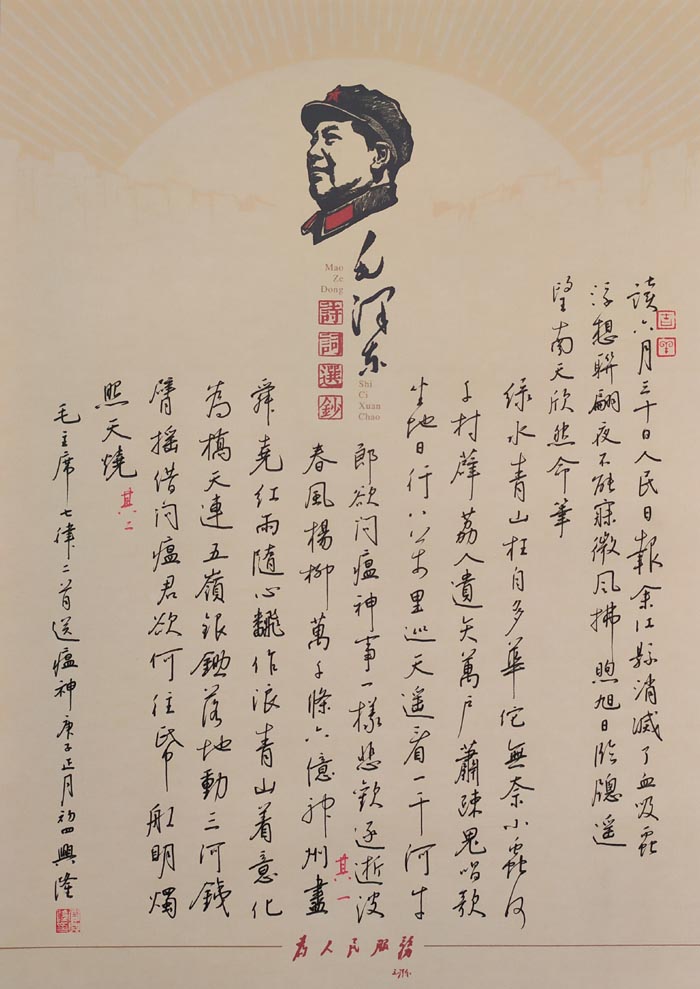 毛澤东
Mao
Ze
Dong
詩詞選鈔
Shi
Ci
Xuan
Chao
读六月三十日人民日報余江縣消滅了血吸蟲
浮想聯翩夜不能寐微风拂煦旭日臨牕遥
望南天欣然命筆
绿水青山枉自多華佗無奈小蟲何
千村薜荔人遺矢萬户蕭疎鬼唱歌
坐地日行八万里巡天遥看一千河牛
郎欲问瘟神事一樣悲歡逐逝波
其一
春風楊柳萬千條六億神州盡
舜堯红雨隨心翻作浪青山着意化
為橋天連五嶺銀鋤落地動三河鐵
臂摇借问瘟君欲何往帋船明燭
照天燒
其二
毛主席七律二首送瘟神庚子正月初四興隆
為人民服務